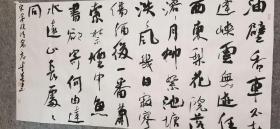 油壁香車不再
逢峽雲無迹任
西東梨花院落
溶溶月柳絮池塘
淡淡風几日寂寥
傷酒後一番蕭
索禁煙中魚
書欲寄何由達
水遠山長處處
同